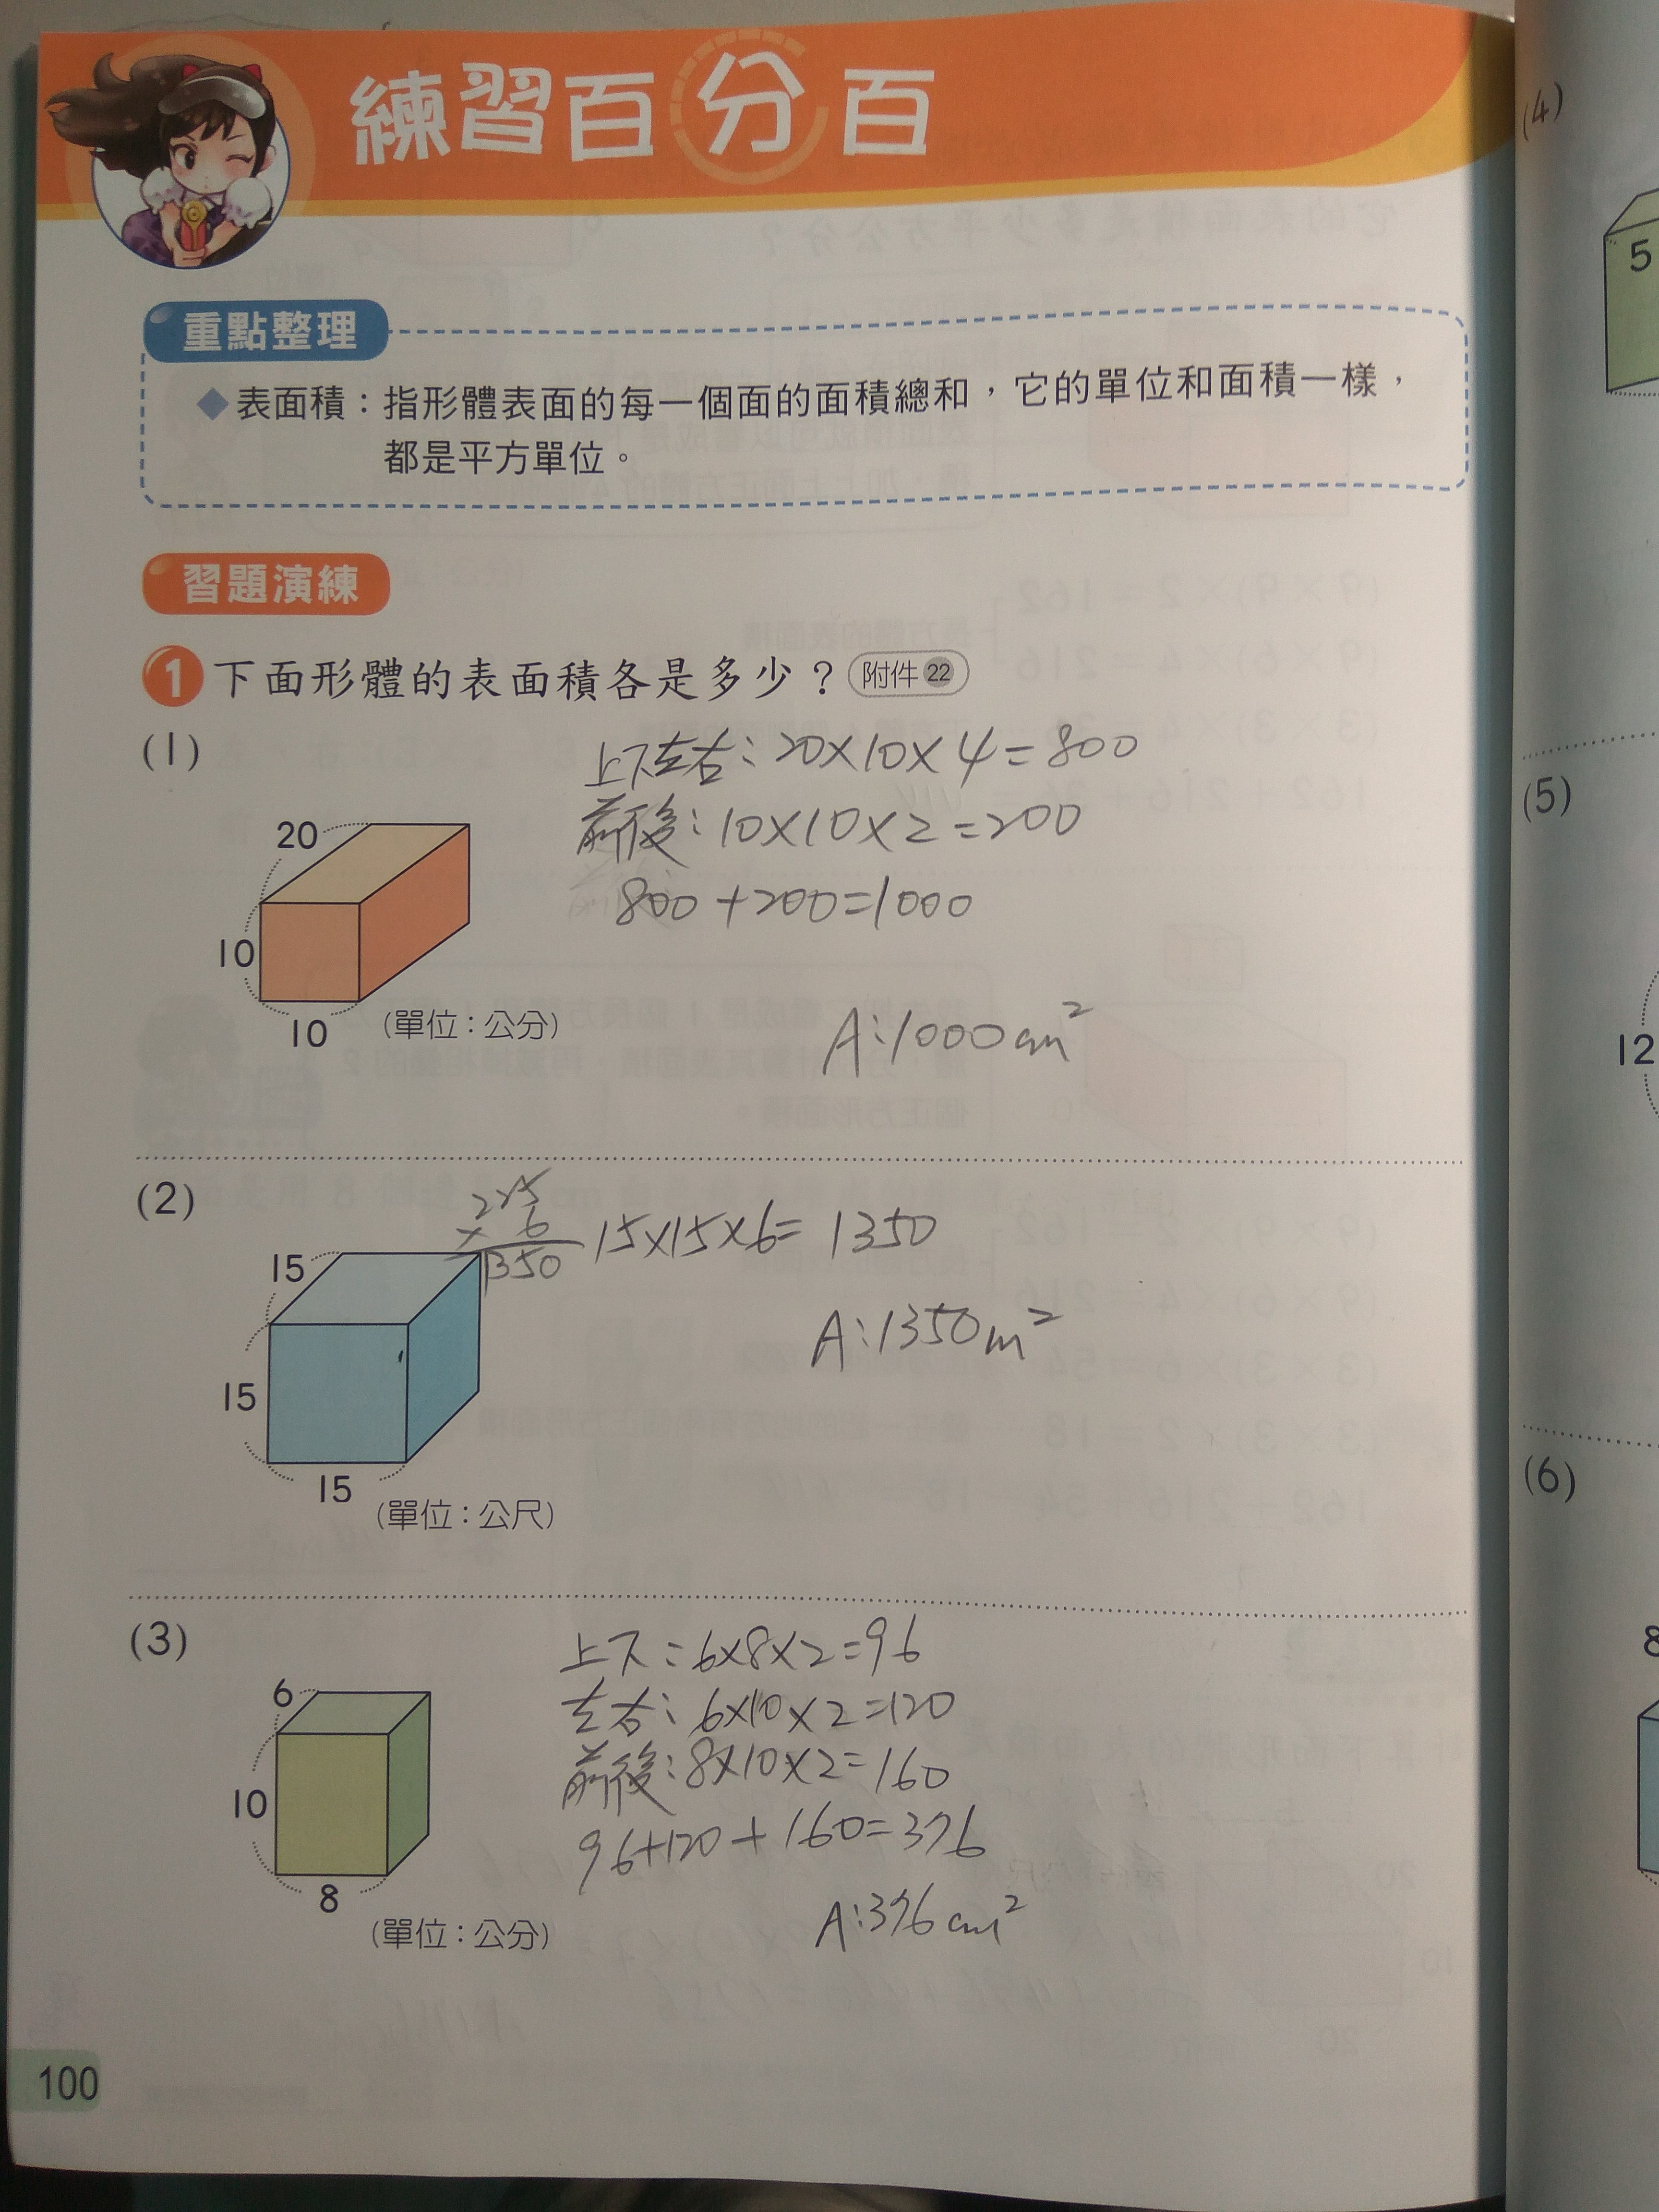 練習百分百
重點整理
◆表面積：指形體表面的每一個面的面積總和，它的單位和面積一樣，
都是平方單位。
習題演練
1 下面形體的表面積各是多少？ 附件 22
(1)
上下左右：20×10×4=800
前後：10×10×2=200
800+200=1000
20
10
10
(單位：公分)
A:1000cm²
(2)
225
×6
1350
15×15×6=1350
A:1350m²
15
15
15
(單位：公尺)
(3)
上下：6×8×2=96
左右：6×10×2=120
前後：8×10×2=160
96+120+160=376
A:376cm²
6
10
8
(單位：公分)
100
(4)
5
(5)
12
(6)
8